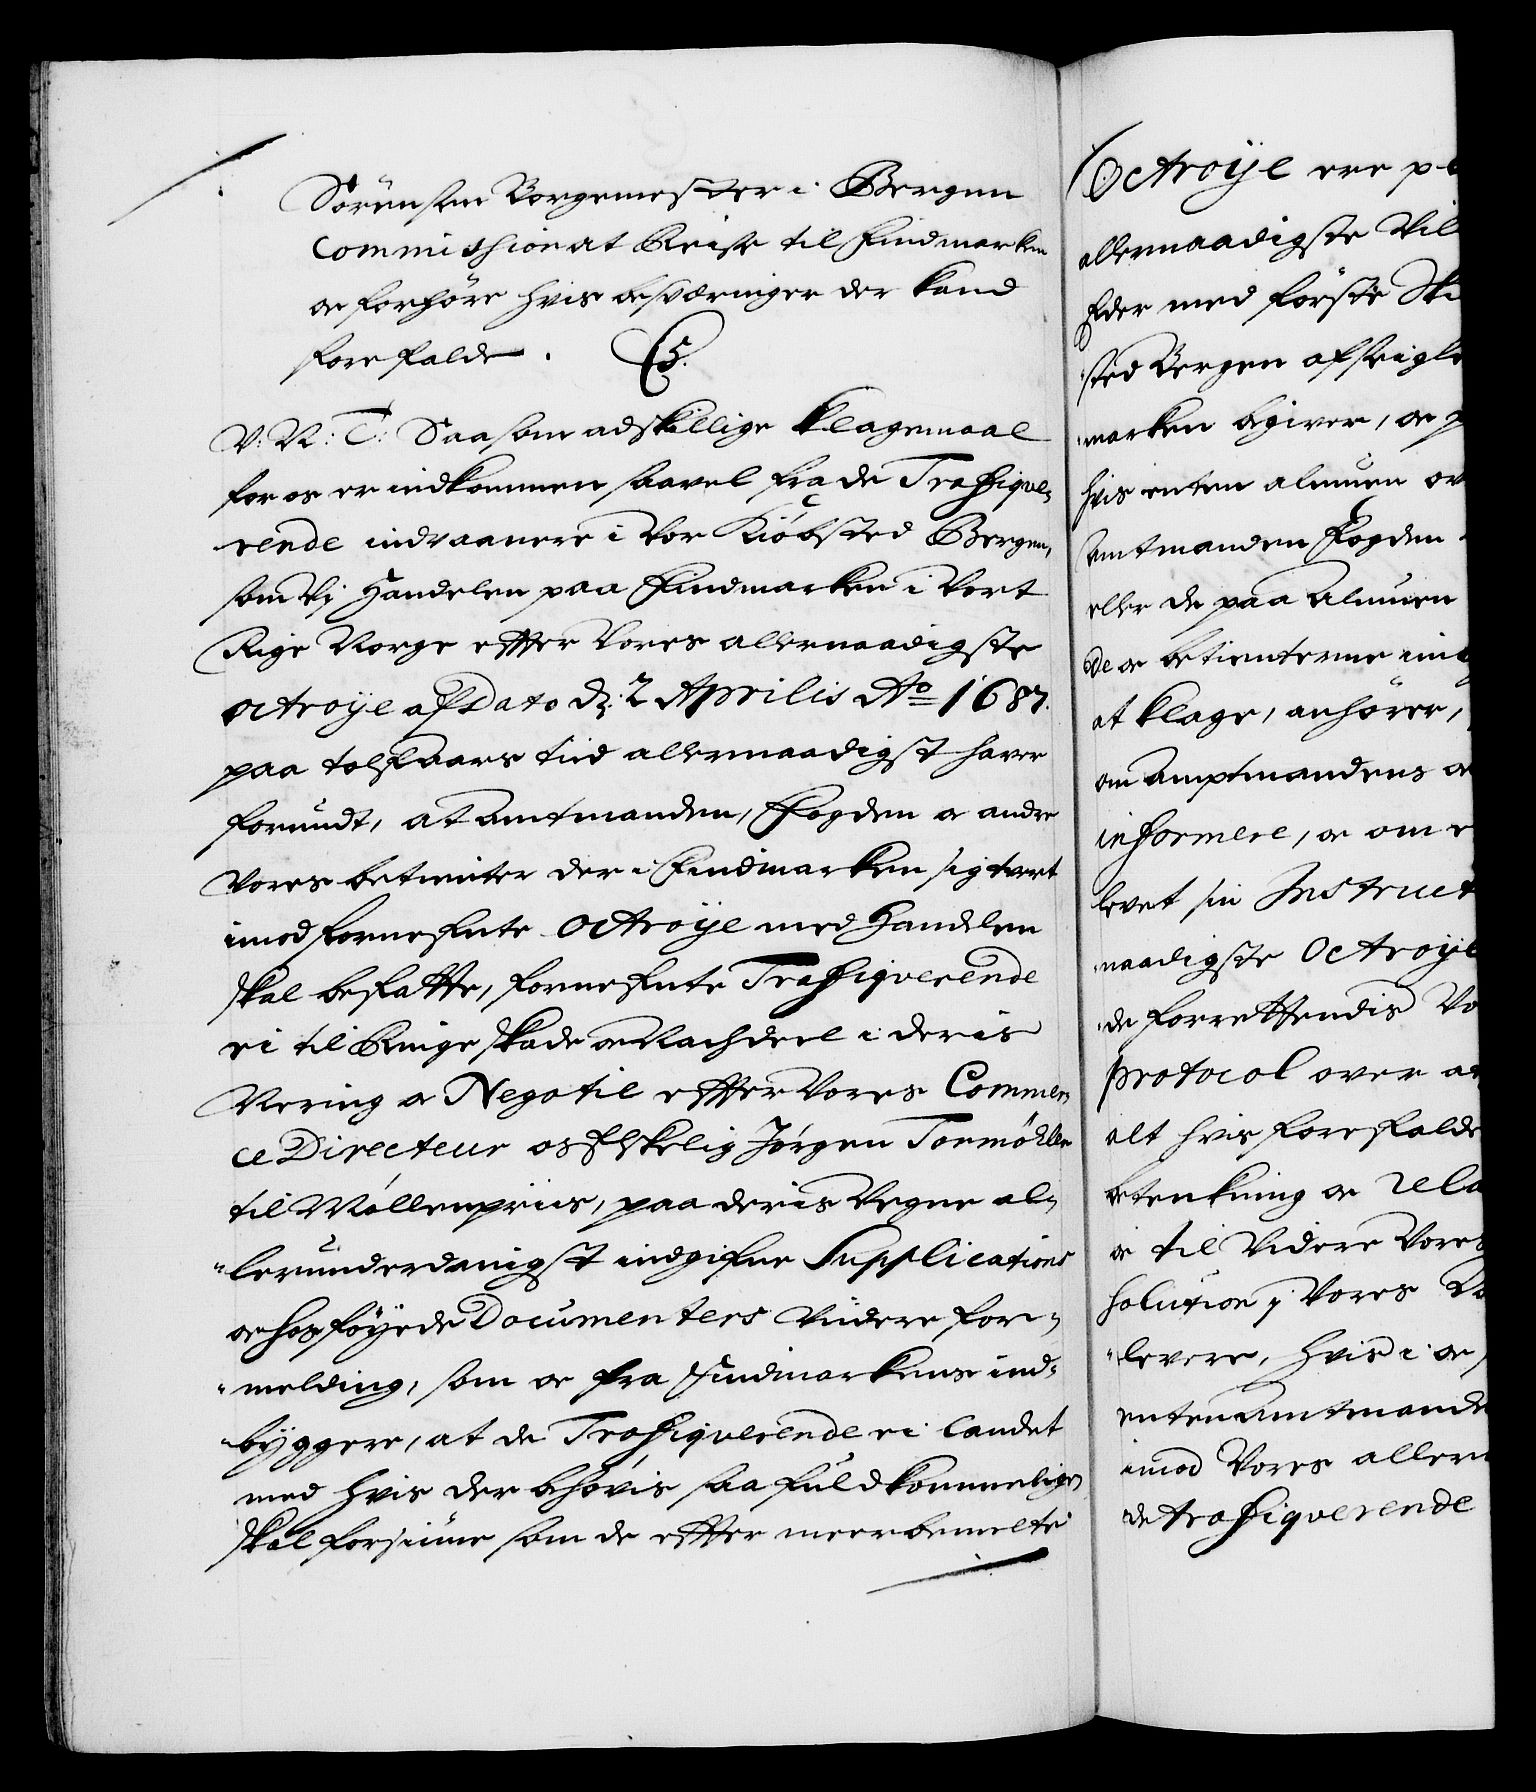 Sörensen Borgemester i Bergen
Commission at Reise til Findmarken
oc forhöre hvis besværinger der kand
forefalde. C5.
V: N: T: Saasom adskillige Klagemaal
for os er indkommen saavel fra de Trafiqve-
rende indvaanere i Vor Kiöbsted Bergen,
som Vi Handelen paa Findmarken i Vort
Rige Norge effter Vores allernaadigste
octroye af Dato d: 2 Aprilis Ao 1687.
paa tolf aars tiid allernaadigst haver
forundt, at Amtmanden, Fogden oc andre
Vores betienter der i Findmarken sig tvert
imod fornefnte Octroye med Handelen
skal befatte, fornefnte Trafiqverende
ei til Ringe skade oc Nachdeel i deris
Nering oc Negotie effter Vores Commer-
ce Directeur os Elskelig Jörgen Tormöhlen
til Möllenpriis, paa deris Vegne al-
lerunderdanigst indgifne Supplications
oc hosföyede Documenters Videre for-
melding, som oc fra Findmarkens ind-
byggere, at de Trafiqverende ei Landet
med hvis der behövis saa fuldkommelige
skal forsiune som de effter meerbemelte
Octroye ere p
allernaadigste Vil
Eder med förste Ski
sted Bergen afseigle
marken begiver, oc p
hvis enten almuen ov
Amtmanden Fogden
eller de paa Almuen
de oc betienterne ind
at klage, anhörer,
om Amptmandens oc
informere, oc om e
levet sin Instruct
naadigste Octroye
de forrettendis Vo
protocol over a
alt hvis forefalde
betenkning oc Rela
oc til Videre Vores
solution i Vores R
levere, hvis i oc
enten Amtmande
imod Vores aller
de trafiqverende